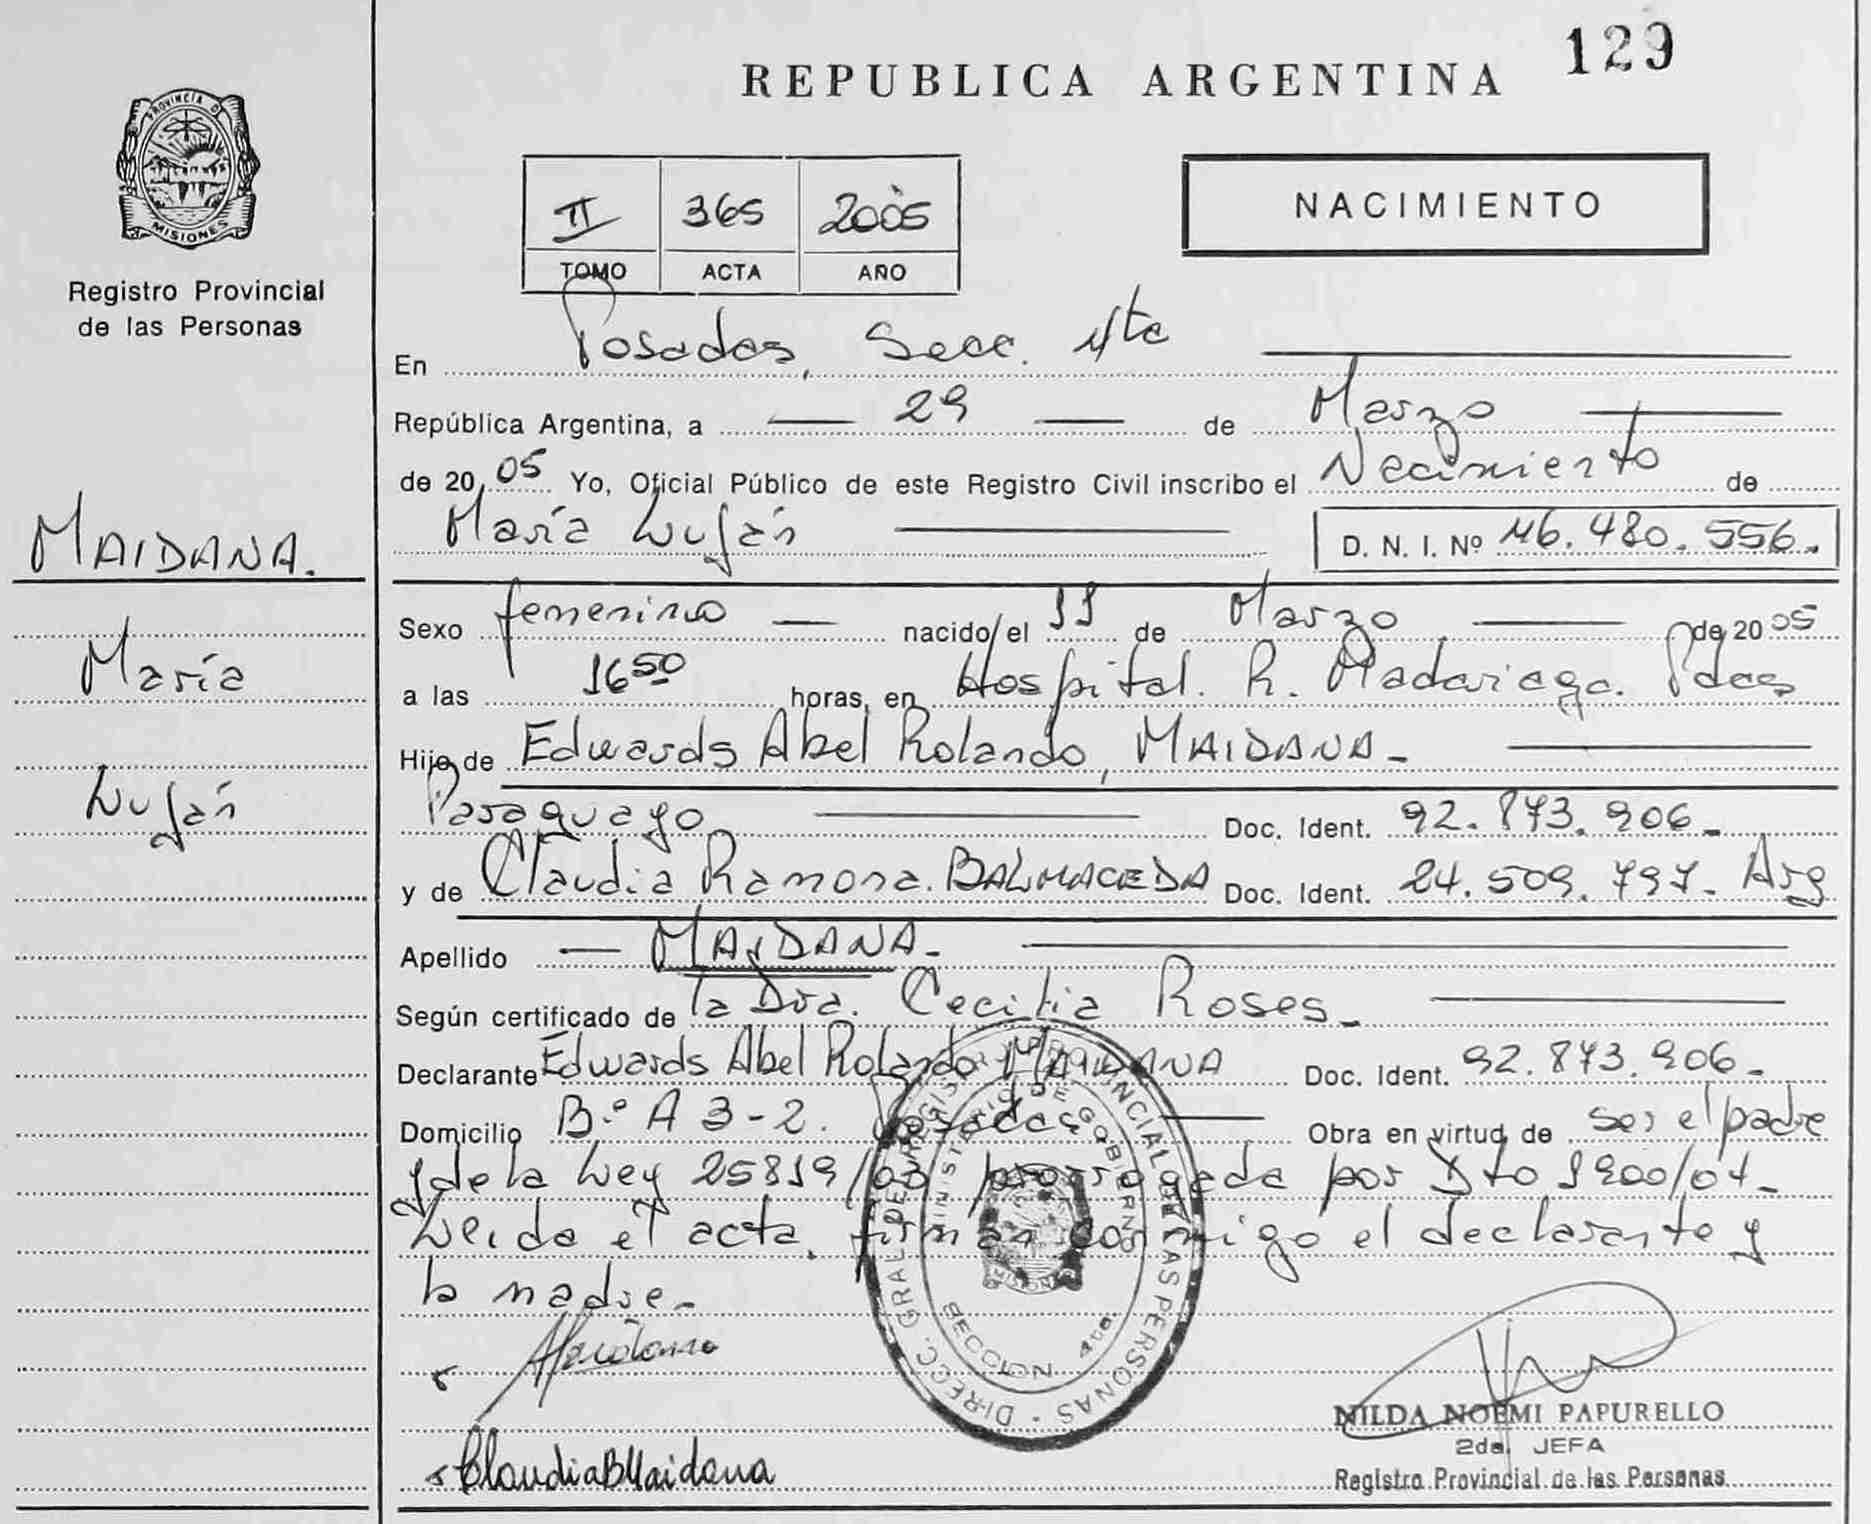 129
REPUBLICA ARGENTINA
PROVINCIA D
MISIONES
Registro Provincial
de las Personas
II 365 2005
TOMO ACTA AÑO
NACIMIENTO
En Posadas, Secc. 4ta
República Argentina, a 29 de Marzo
de 2005 Yo, Oficial Público de este Registro Civil inscribo el Nacimiento de
María Luján D. N. I. Nº 46.480.556.
MAIDANA.
María
Luján
Sexo femenino nacido/el 11 de Marzo de 2005
a las 16 50 horas, en Hospital. R. Madariaga. Pdas
Hijo de Edwards Abel Rolando, MAIDANA-
Paraguayo Doc. Ident. 92.873.906-
y de Claudia Ramona. BALMACEDA Doc. Ident. 24.509.797- Arg
Apellido MAIDANA-
Según certificado de la Dra. Cecilia Roses-
Declarante Edwards Abel Rolando MAIDANA Doc. Ident. 92.873.906-
Domicilio B.º A 3-2. Posadas. Obra en virtud de ser el padre
y de la Ley 25819/03 prorrogada por Dto 1900/04-
Leida el acta, firman conmigo el declarante y
la madre-
DIRECC. GRAL DEL REGISTRO PROVINCIAL DE LAS PERSONAS
MINISTERIO DE GOBIERNO
MISIONES
SECCION 4ta.
ClaudiaBMaidana
NILDA NOEMI PAPURELLO
2da. JEFA
Registro Provincial de las Personas